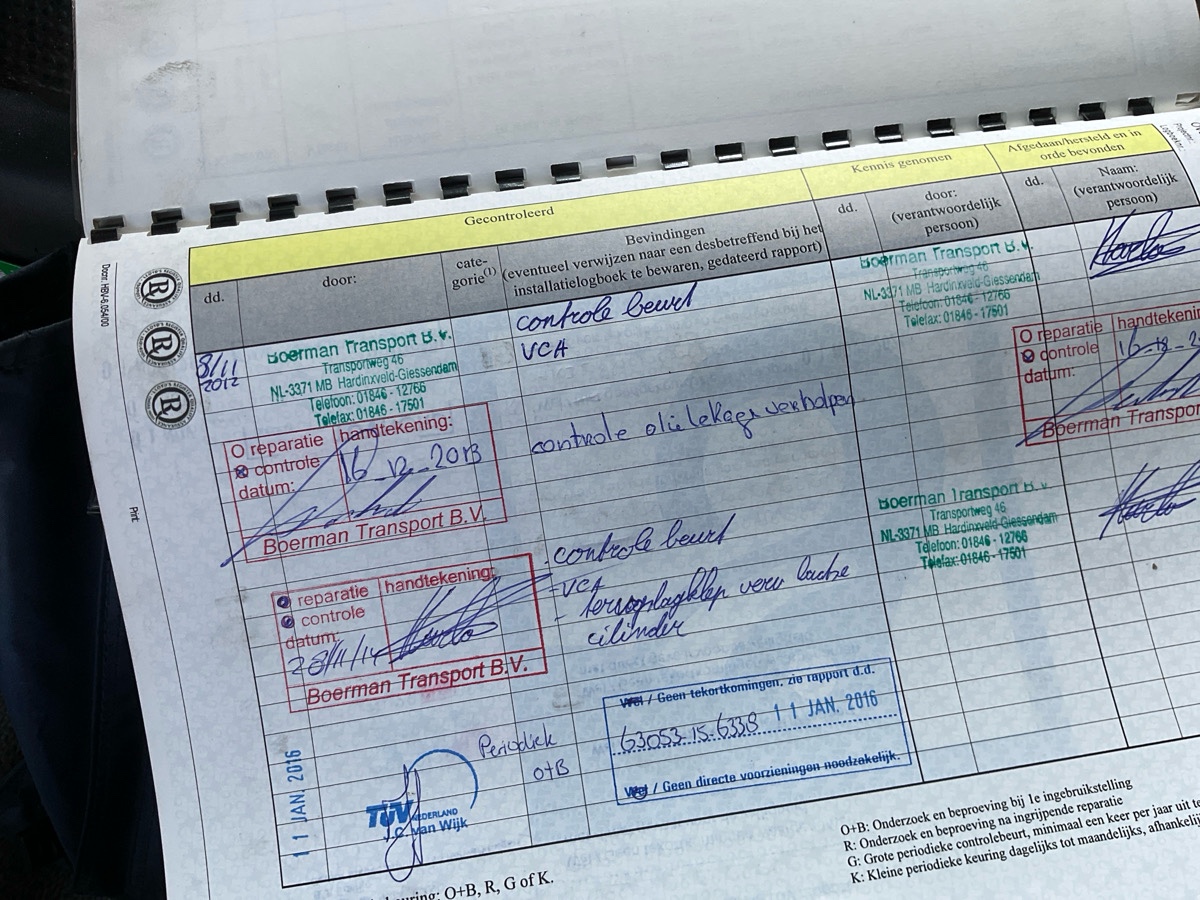 Gecontroleerd
Kennis genomen
Afgedaan/hersteld en in
orde bevonden
dd.
door:
cate-
gorie(1)
Bevindingen
(eventueel verwijzen naar een desbetreffend bij het
installatielogboek te bewaren, gedateerd rapport)
dd.
door:
(verantwoordelijk
persoon)
dd.
Naam:
(verantwoordelijk
persoon)
Docnr. HBV-6.054/00
Print
8/11
2012
Boerman Transport B.V.
Transportweg 46
NL-3371 MB Hardinxveld-Giessendam
Telefoon: 01846 - 12766
Telefax: 01846 - 17501
controle beurt
VCA
Boerman Transport B.V.
Transportweg 46
NL-3371 MB Hardinxveld-Giessendam
Telefoon: 01846 - 12766
Telefax: 01846 - 17501
O reparatie
controle
datum:
handtekening:
16-12-2013
Boerman Transport B.V.
controle olie lekage verholpen
O reparatie
controle
datum:
handtekening:
Boerman Transport
reparatie
controle
datum:
handtekening:
28/11/14
Boerman Transport B.V.
- controle beurt
- VCA
- terugslagklep
cilinder
Boerman Transport B.V.
Transportweg 46
NL-3371 MB Hardinxveld-Giessendam
Telefoon: 01846 - 12766
Telefax: 01846 - 17501
11 JAN. 2016
TÜV NEDERLAND
J.C. van Wijk
Periodiek
O+B
Wel / Geen tekortkomingen, zie rapport d.d.
63053-15-6338 11 JAN. 2016
Wel / Geen directe voorzieningen noodzakelijk.
O+B: Onderzoek en beproeving bij 1e ingebruikstelling
R: Onderzoek en beproeving na ingrijpende reparatie
G: Grote periodieke controlebeurt, minimaal een keer per jaar uit
K: Kleine periodieke keuring dagelijks tot maandelijks,
O+B, R, G of K.